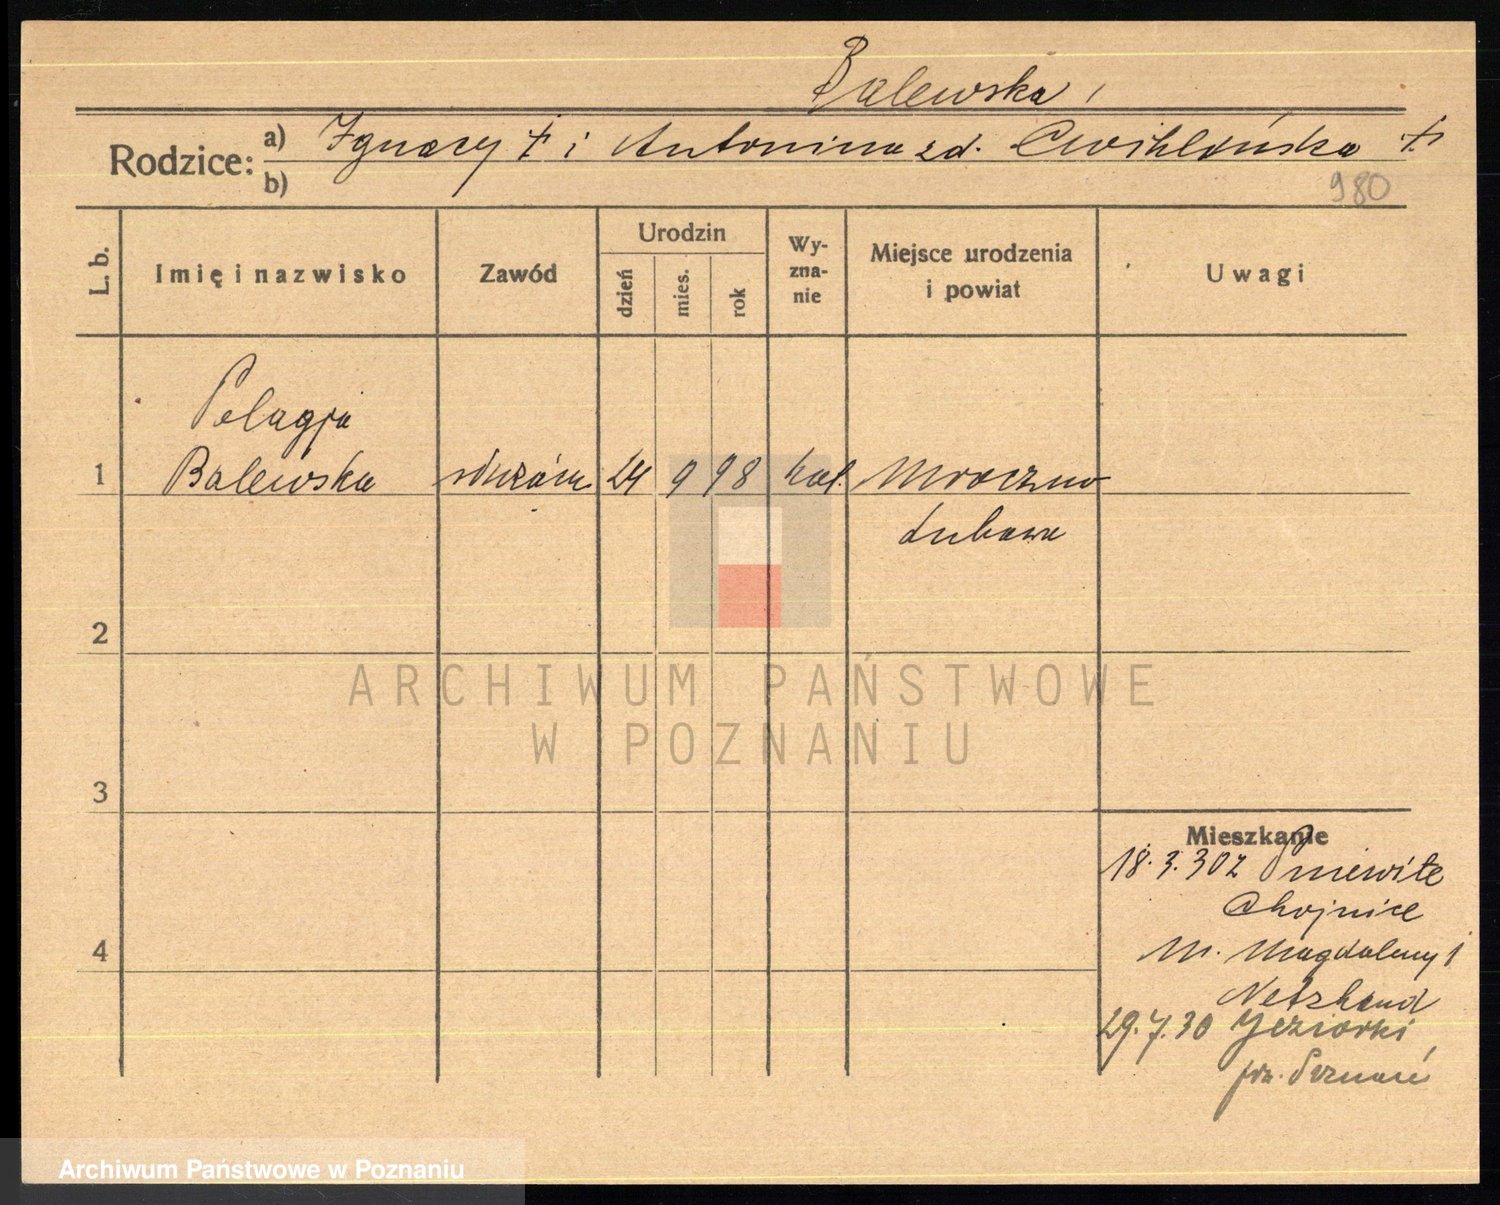 Balewska
Rodzice: a) Ignacy † i Antonina zd. Cwiklińska †
b)
980
L. b.
Imię i nazwisko
Zawód
Urodzin
dzień
mies.
rok
Wy-
zna-
nie
Miejsce urodzenia
i powiat
Uwagi
Pelagja
1 Balewska służąca 24 9 98 kat. Mroczno
Lubawa
2
3
4
Mieszkanie
18.3.30 z Pniewite
Chojnice
M. Magdaleny 1
29.7.30 Jeziorki
pw. Poznań
ARCHIWUM PAŃSTWOWE
W POZNANIU
Archiwum Państwowe w Poznaniu